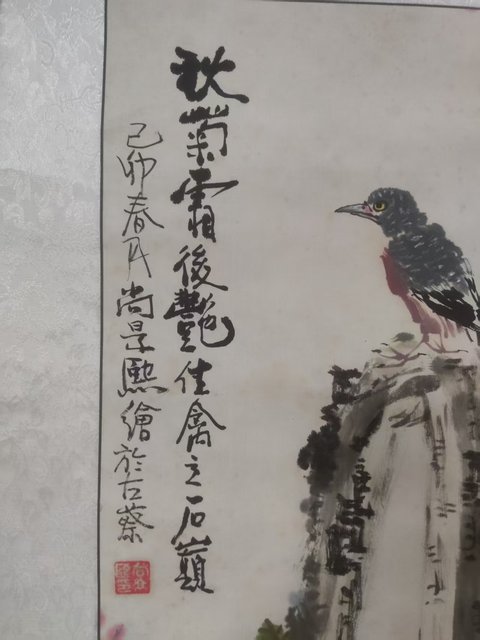 秋菊霜後艷佳禽立石巔
己卯春月尚景熙繪於古蔡